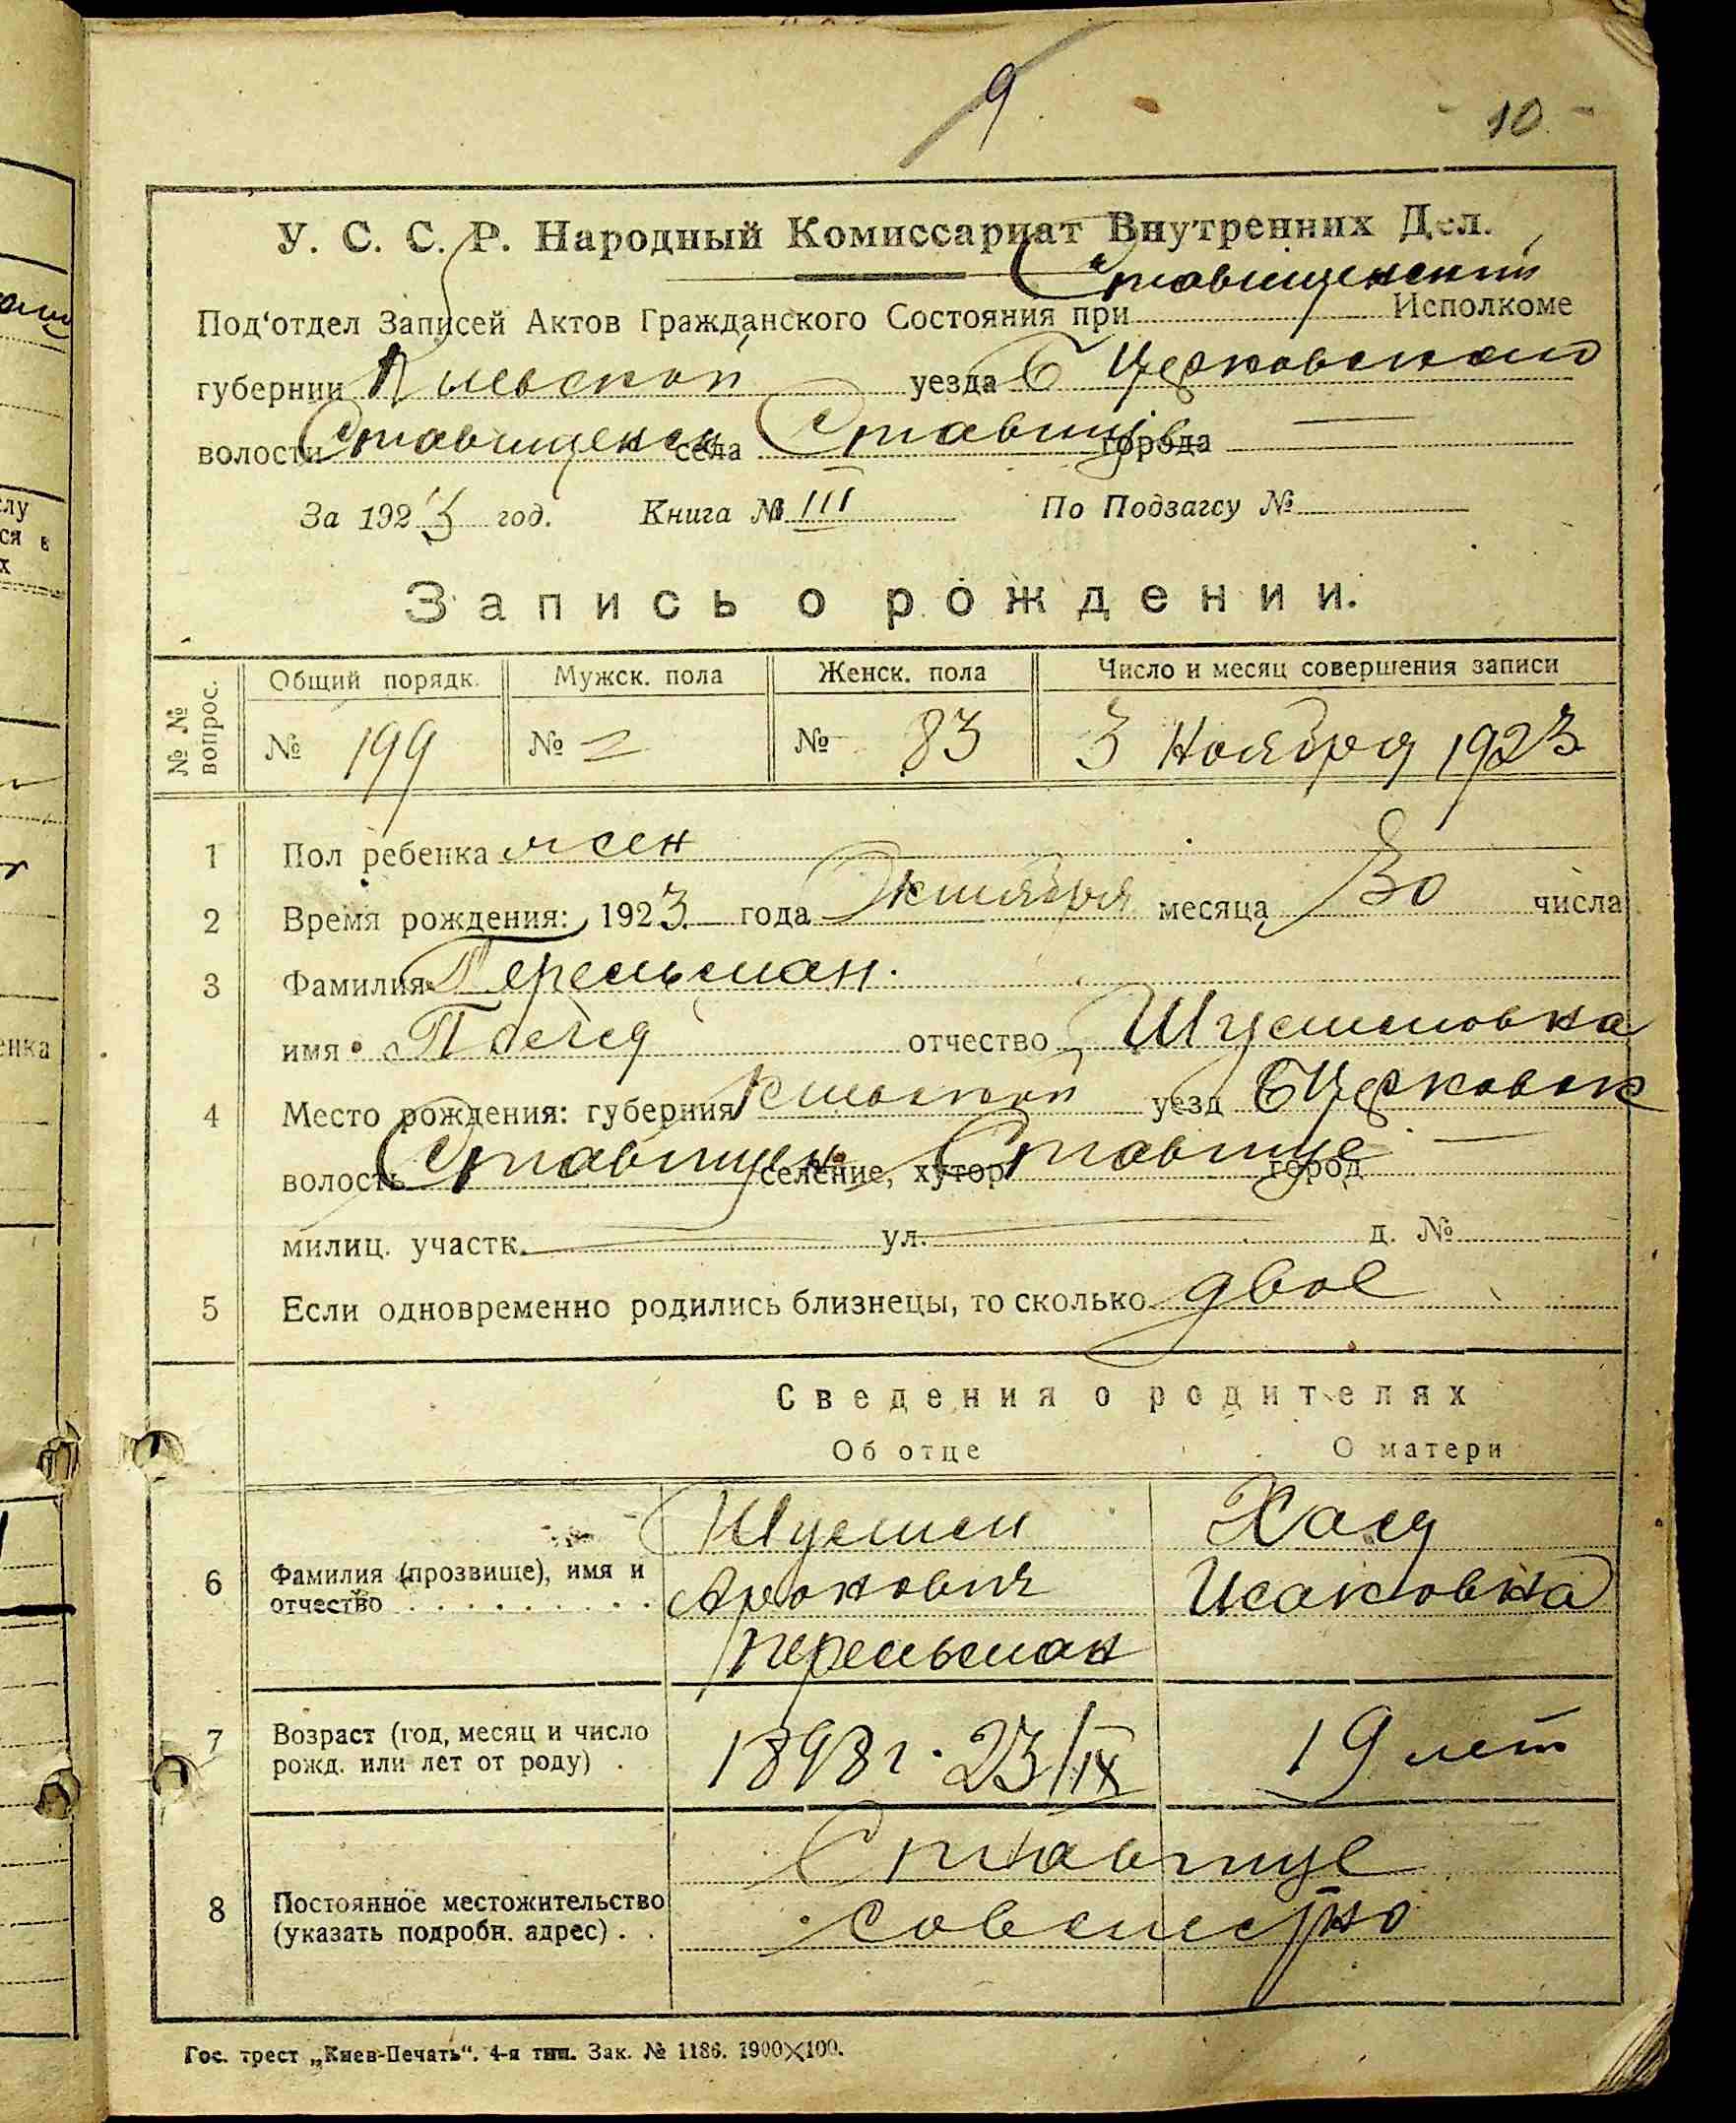 9
10
У. С. С. Р. Народный Комиссариат Внутренних Дел.
Под‘отдел Записей Актов Гражданского Состояния при Ставищенский Исполкоме
губернии Киевской уезда Б Церковского
волости Ставищенск села Ставище города —
За 1923 год. Книга № III По Подзагсу №
Запись о рождении.
№ № вопрос. Общий порядк. Мужск. пола Женск. пола Число и месяц совершения записи
№ 199 № № 83 3 Ноября 1923
1 Пол ребенка жен
2 Время рождения: 1923 года Октября месяца 30 числа
3 Фамилия Перельман.
имя отчество
4 Место рождения: губерния Киевской уезд Б Церковск
волость Ставищен селение, хутор Ставище город —
милиц. участк. — ул. — д. №
5 Если одновременно родились близнецы, то сколько двое
Сведения о родителях
Об отце О матери
Хася
6 Фамилия (прозвище), имя и отчество Аронович Исаковна
Перельман
7 Возраст (год, месяц и число рожд. или лет от роду) 1898 г. 23/IX 19 лет
Ставище
8 Постоянное местожительство (указать подробн. адрес) совместно
Гос. трест „Киев-Печать“. 4-я тип. Зак. № 1186. 1900×100.